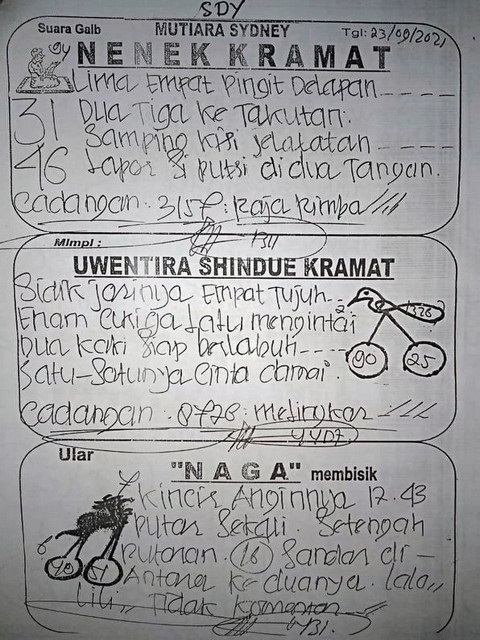 SDY
Suara Gaib MUTIARA SYDNEY Tgl: 23/09/2021
94 NENEK KRAMAT
Lima Empat Pingit Delapan
31 Dua Tiga ke Takutan.
Samping kisi
46 Lapor Si putri di dua Tangan.
Cadangan : 3157 : Raja Rimba
1311
Mimpi :
UWENTIRA SHINDUE KRAMAT
Sidik Jarinya Empat Tujuh
Enam Curiga Satu mengintai
Dua kaki Siap berlabuh
Satu-Satunya Cinta damai.
2 1328
90 25
Cadangan : 8728 : melingkar
Ular
"NAGA" membisik
7 kincir Anginnya 17.43
putar Sekali. Setengah
6 putaran. 18 Sandar di-
90 51 Antara ke duanya. lala,,
lili,, Tidak